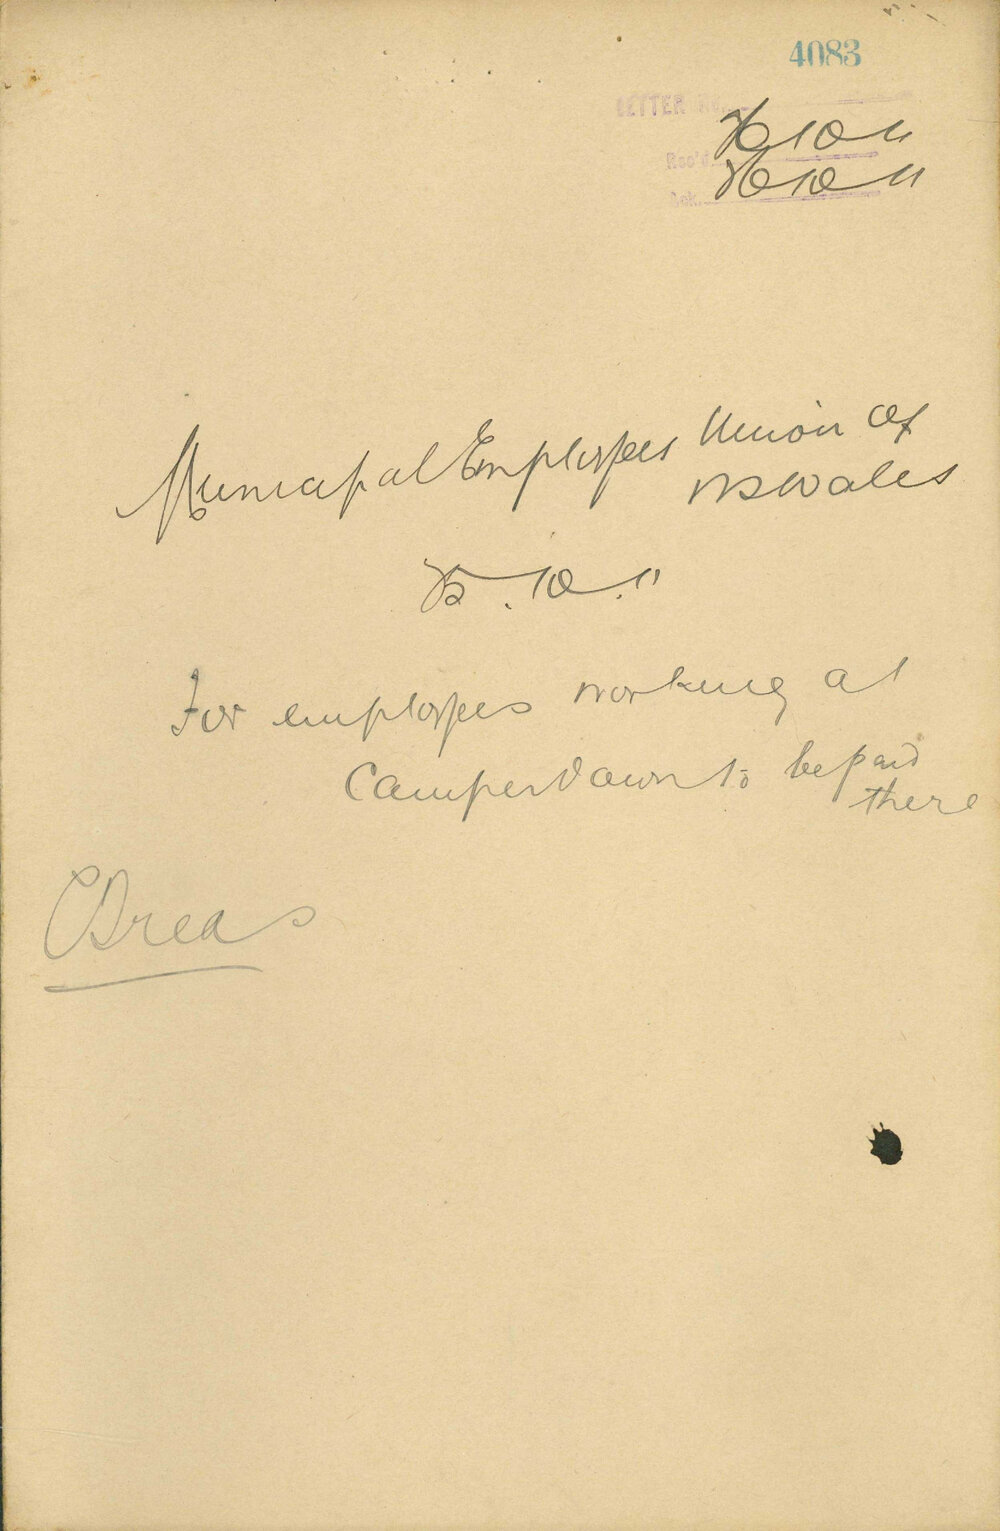 4083
LETTER
Rec'd. 16 10 11
Ack. 16 10 11
Municipal Employees Union Of
NSWales
13.10.11
For employees working at
Camperdown to be paid
there